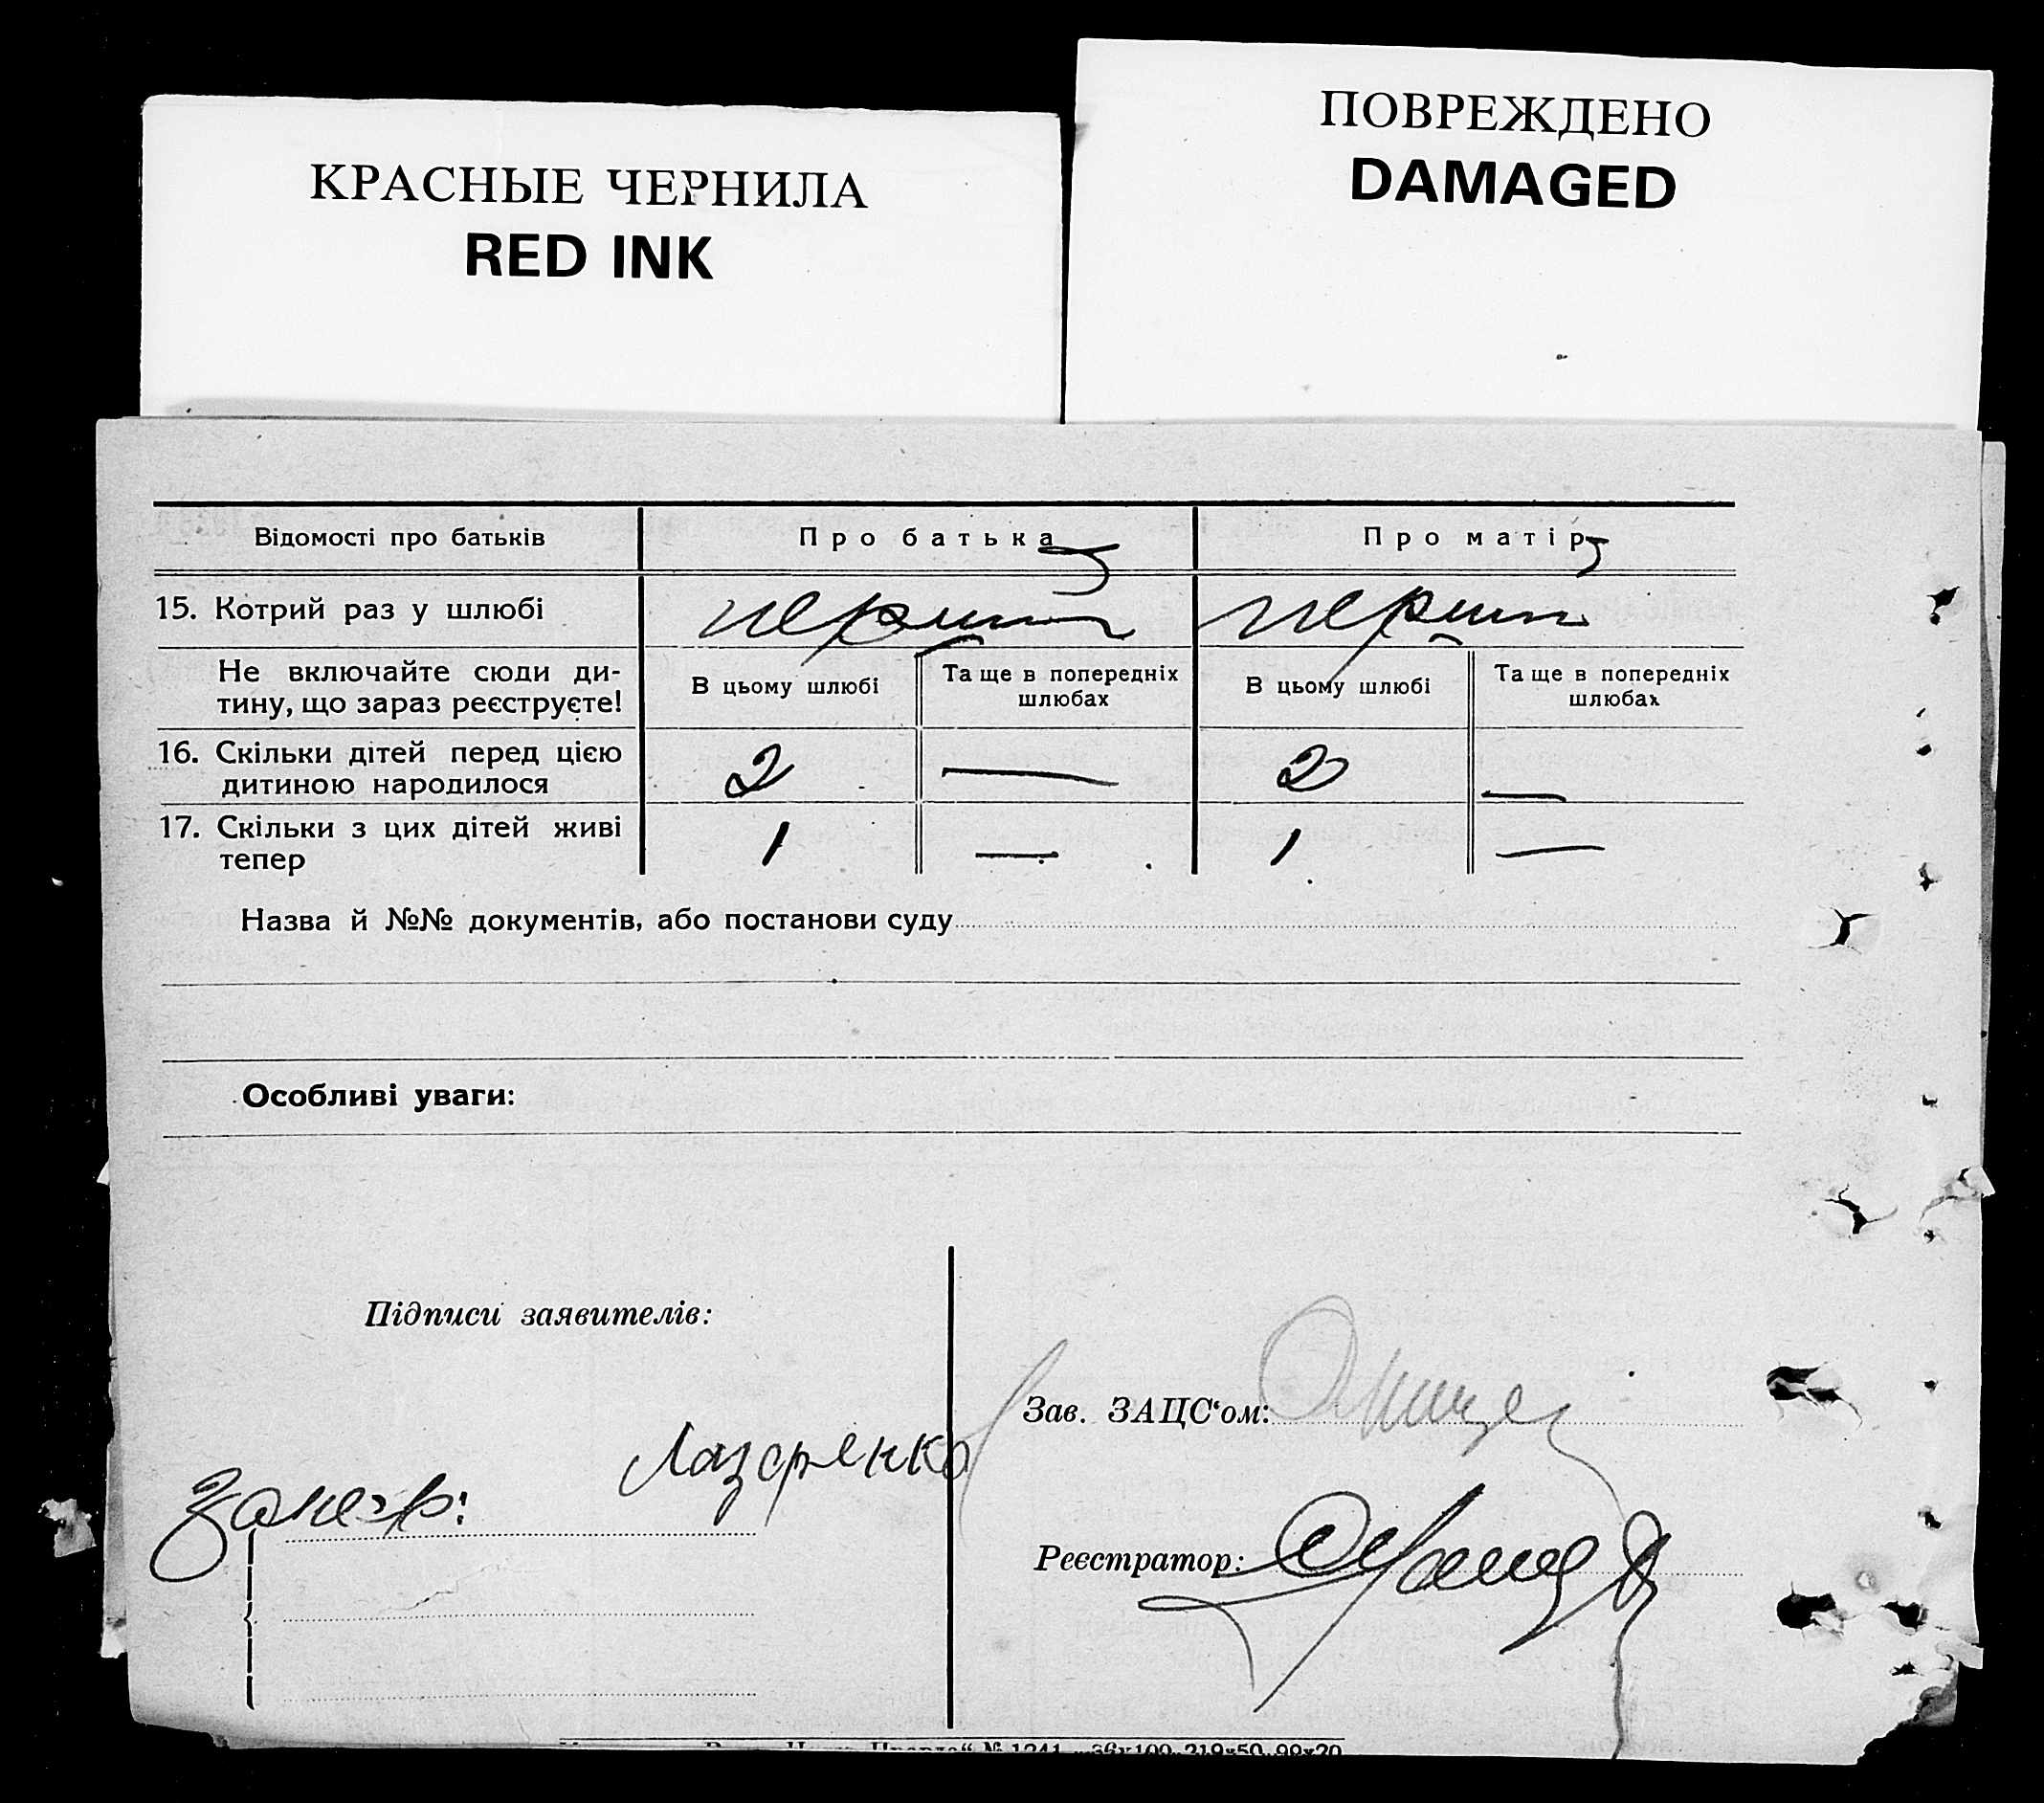 КРАСНЫЕ ЧЕРНИЛА
RED INK
ПОВРЕЖДЕНО
DAMAGED
Відомості про батьків Про батька Про матір
15. Котрий раз у шлюбі
Не включайте сюди ди-
тину, що зараз реєструєте!
В цьому шлюбі Та ще в попередніх
шлюбах
В цьому шлюбі Та ще в попередніх
шлюбах
16. Скільки дітей перед цією
дитиною народилося 2 — 2 —
17. Скільки з цих дітей живі
тепер 1 — 1 —
Назва й №№ документів, або постанови суду
Особливі уваги:
Підписи заявителів:
Лазаренко
Зав. ЗАЦС‘ом:
Реєстратор: